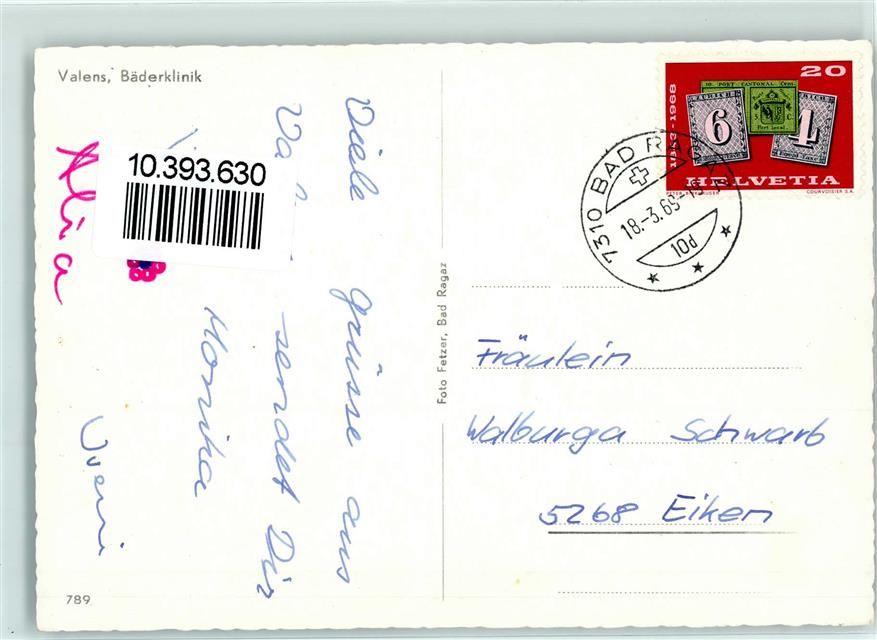 Valens, Bäderklinik
10.393.630
Viele grüsse aus
sendet Dir
Monika
Vreni
789
Foto Fetzer, Bad Ragaz
20
10. PORT CANTONAL Cent.
5. C.
Port local.
ZÜRICH
6
4
1843-1968
HELVETIA
COURVOISIER S.A.
7310 BAD RAGAZ
18.-3.69-
10d
Fräulein
Walburga Schwarb
5268 Eiken